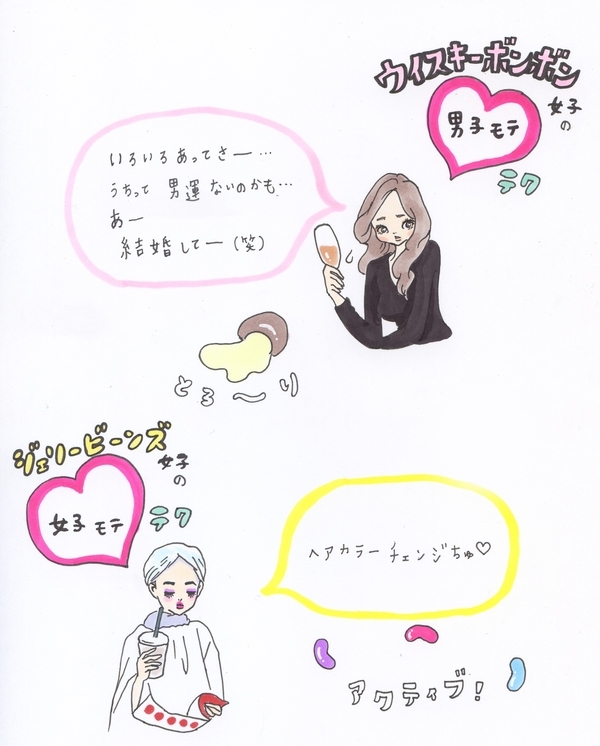 ウイスキーボンボン
女子
の
男子モテ
テク
いろいろあってさー…
うちって 男運ないのかも…
あー
結婚してー(笑)
とろ〜り
ジェリービーンズ
女子
の
女子モテ
テク
ヘアカラーチェンジちゅ♡
アクティブ!